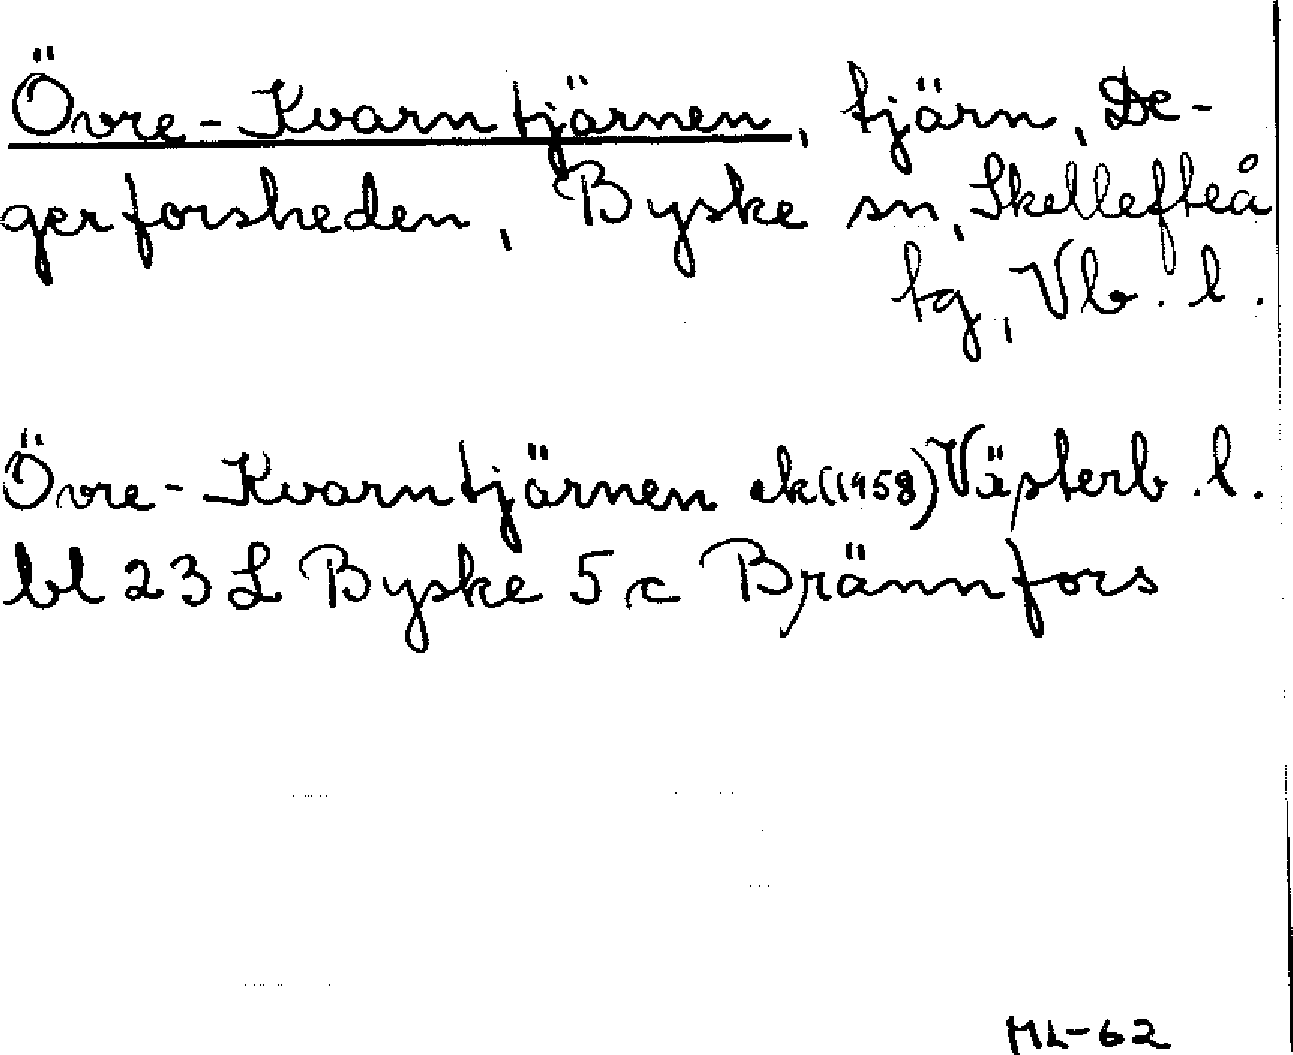 Övre-Kvarntjärnen, tjärn, De-
gerforsheden, Byske sn, Skellefteå
tg, Vb. l.
Övre-Kvarntjärnen ek (1958) Västerb. l.
bl 23 L Byske 5 c Brännfors
ML-62